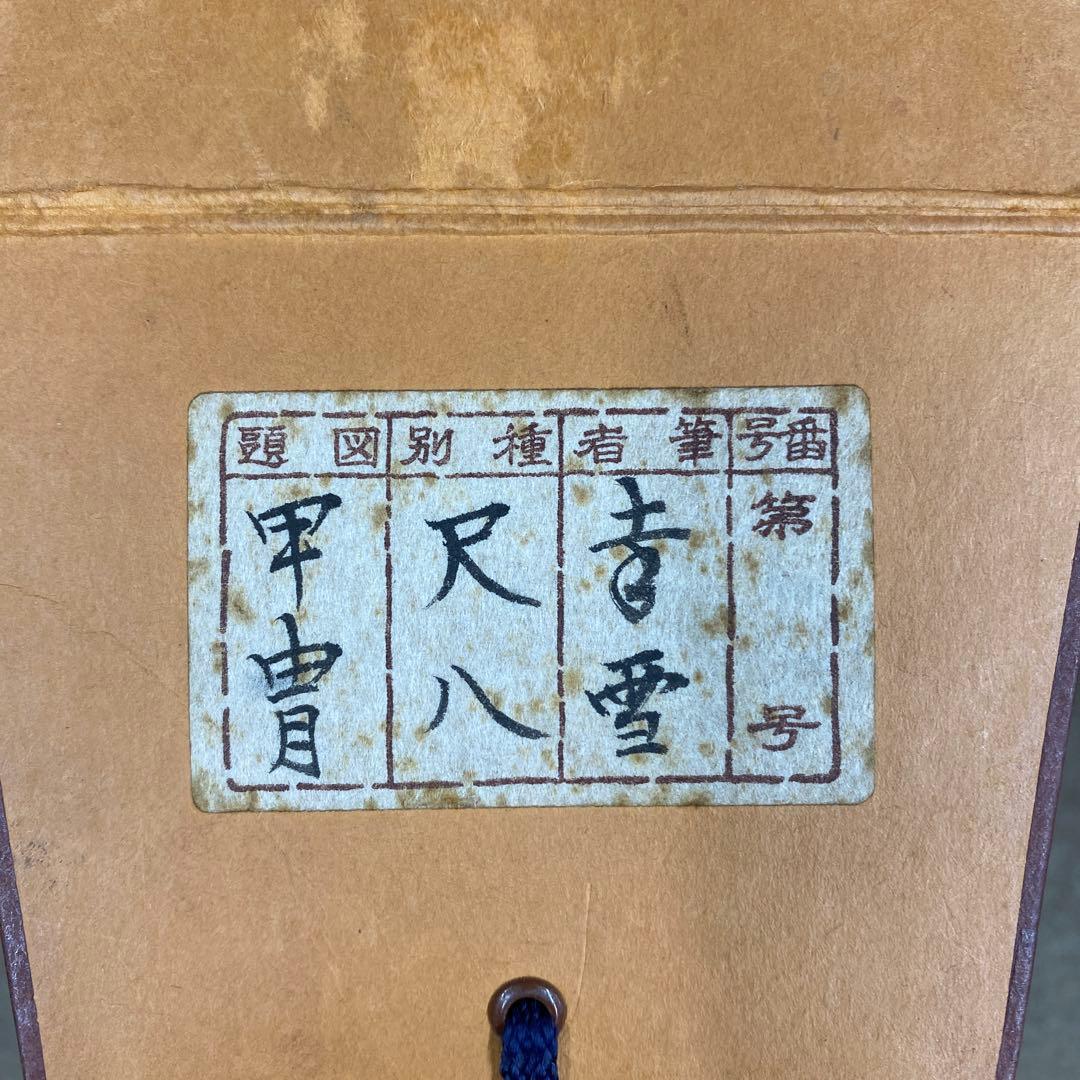 番号
第 号
筆者
雪
種別
尺八
図題
甲冑